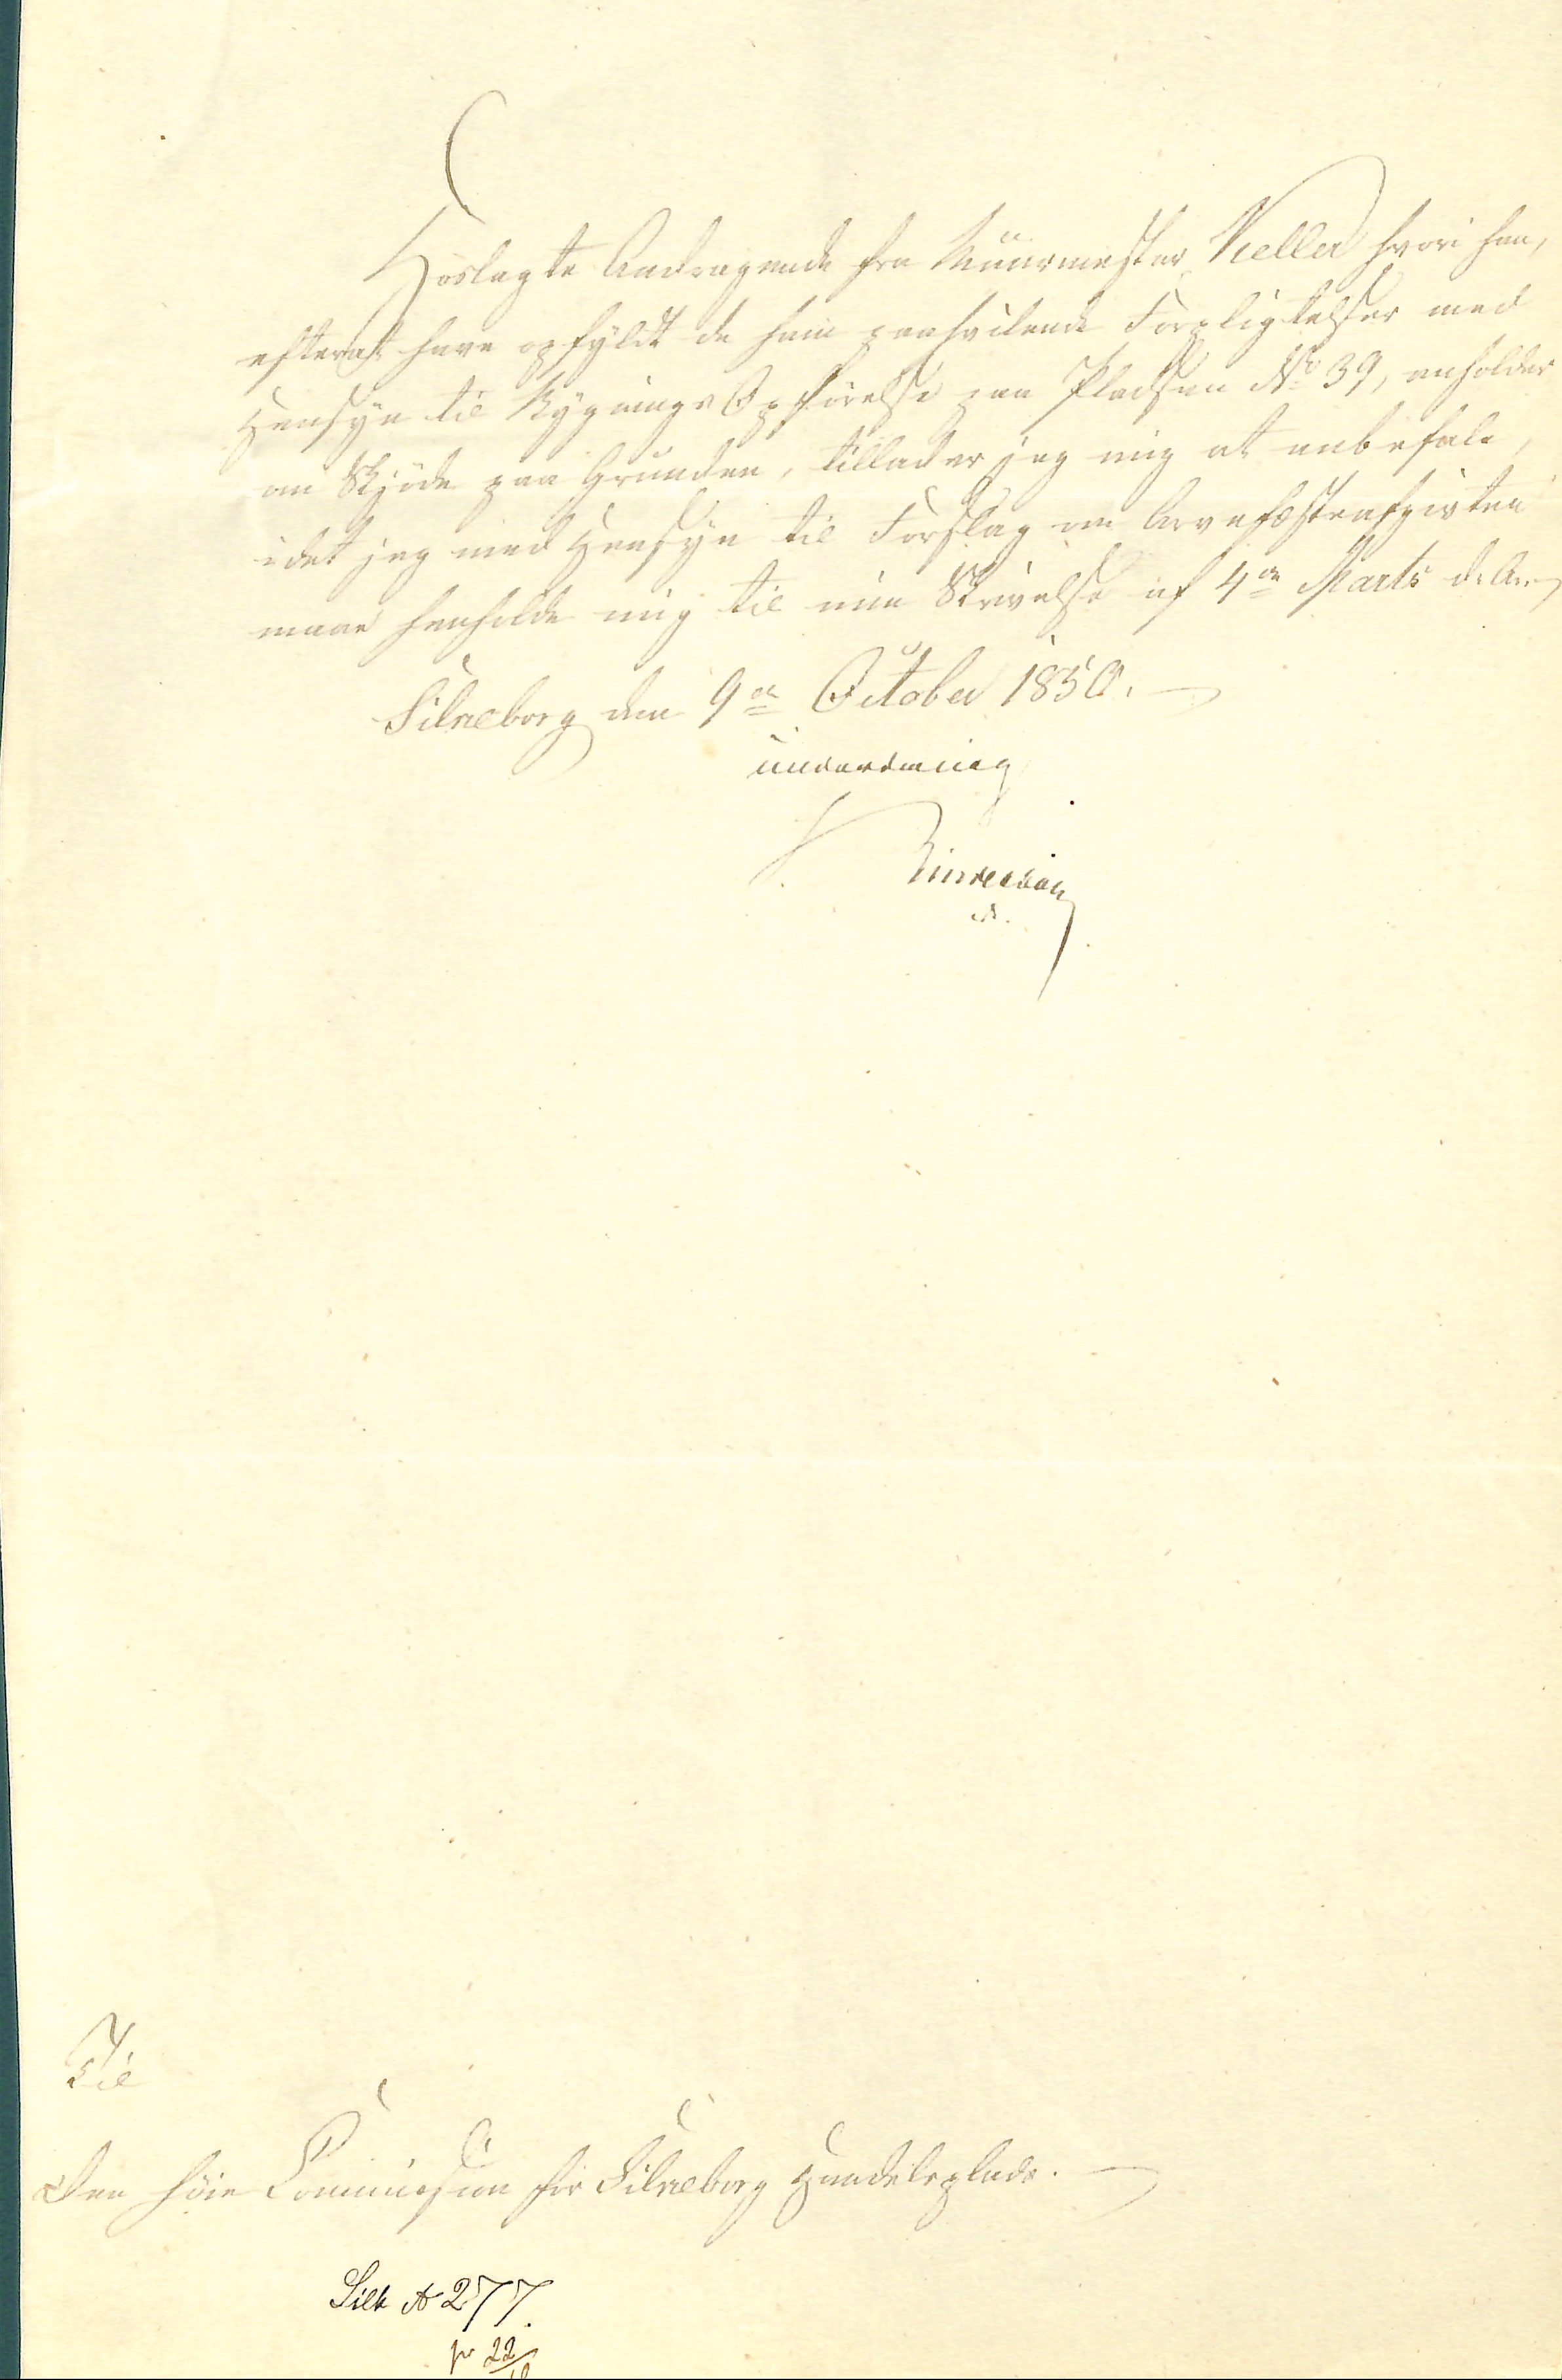 Hoslagte Andragende fra Muurmester Keller hvori han,
efterat have opfyldt de ham paahvilende Forpligtelser med
Hensyn til Bygnings Opførelse paa Pladsen No 39, anholder
om Skjöde paa Grunden, tillader jeg mig at anbefale,
idet jeg med Hensyn til Forslag om Arvefæsteafgivten
maae henholde mig til min Skrivelse af 4de Marts d. Aar,
Silkeborg den 9de October 1850.
underdanig
Den höie Commission for Silkeborg Handelsplads.
Til
Silk A 277.
pr 22/10